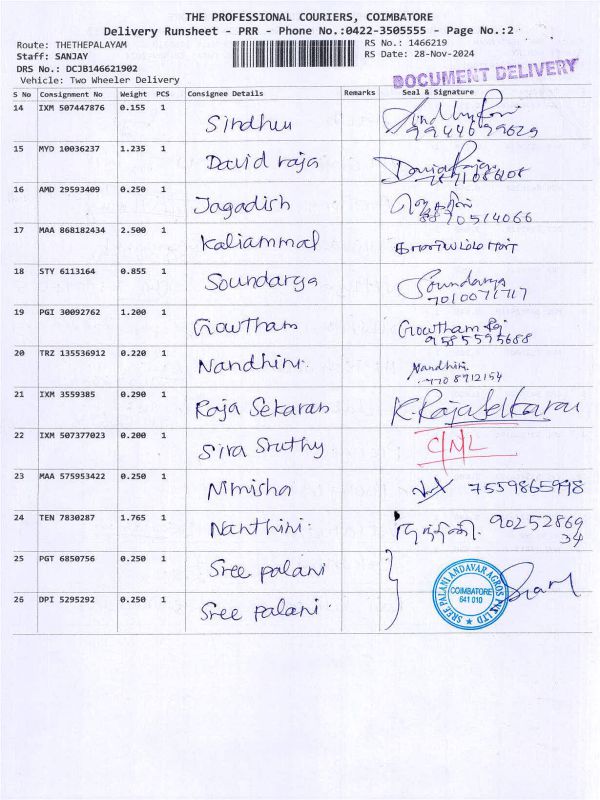 THE PROFESSIONAL COURIERS, COIMBATORE
Delivery Runsheet - PRR - Phone No.:0422-3505555 - Page No.:2
Route: THETHEPALAYAM
RS No.: 1466219
Staff: SANJAY
RS Date: 28-Nov-2024
DRS No.: DCJB146621902
Vehicle: Two Wheeler Delivery
DOCUMENT DELIVERY
S No Consignment No Weight PCS Consignee Details Remarks Seal & Signature
14 IXM 507447876 0.155 1 Sindhu
9944699629
15 MYD 10036237 1.235 1 David raja
16 AMD 29593409 0.250 1 Jagadish
8870514066
17 MAA 868182434 2.500 1 Kaliammal
18 STY 6113164 0.855 1 Soundarya Soundarya
7010071717
19 PGI 30092762 1.200 1 Gowtham Gowtham Raj
9585595688
20 TRZ 135536912 0.220 1 Nandhini. Nandhini.
7708912154
21 IXM 3559385 0.290 1 Raja Sekaran K. RajaSekaran
22 IXM 507377023 0.200 1 Siva Sruthy C/N/L
23 MAA 575953422 0.250 1 Nimisha 7559865998
24 TEN 7830287 1.765 1 Nanthini. நந்தினி. 90252869
34
25 PGT 6850756 0.250 1 Sree palani
SREE PALANI ANDAVAR AGROS PVT LTD
COIMBATORE
641 010
26 DPI 5295292 0.250 1 Sree palani.